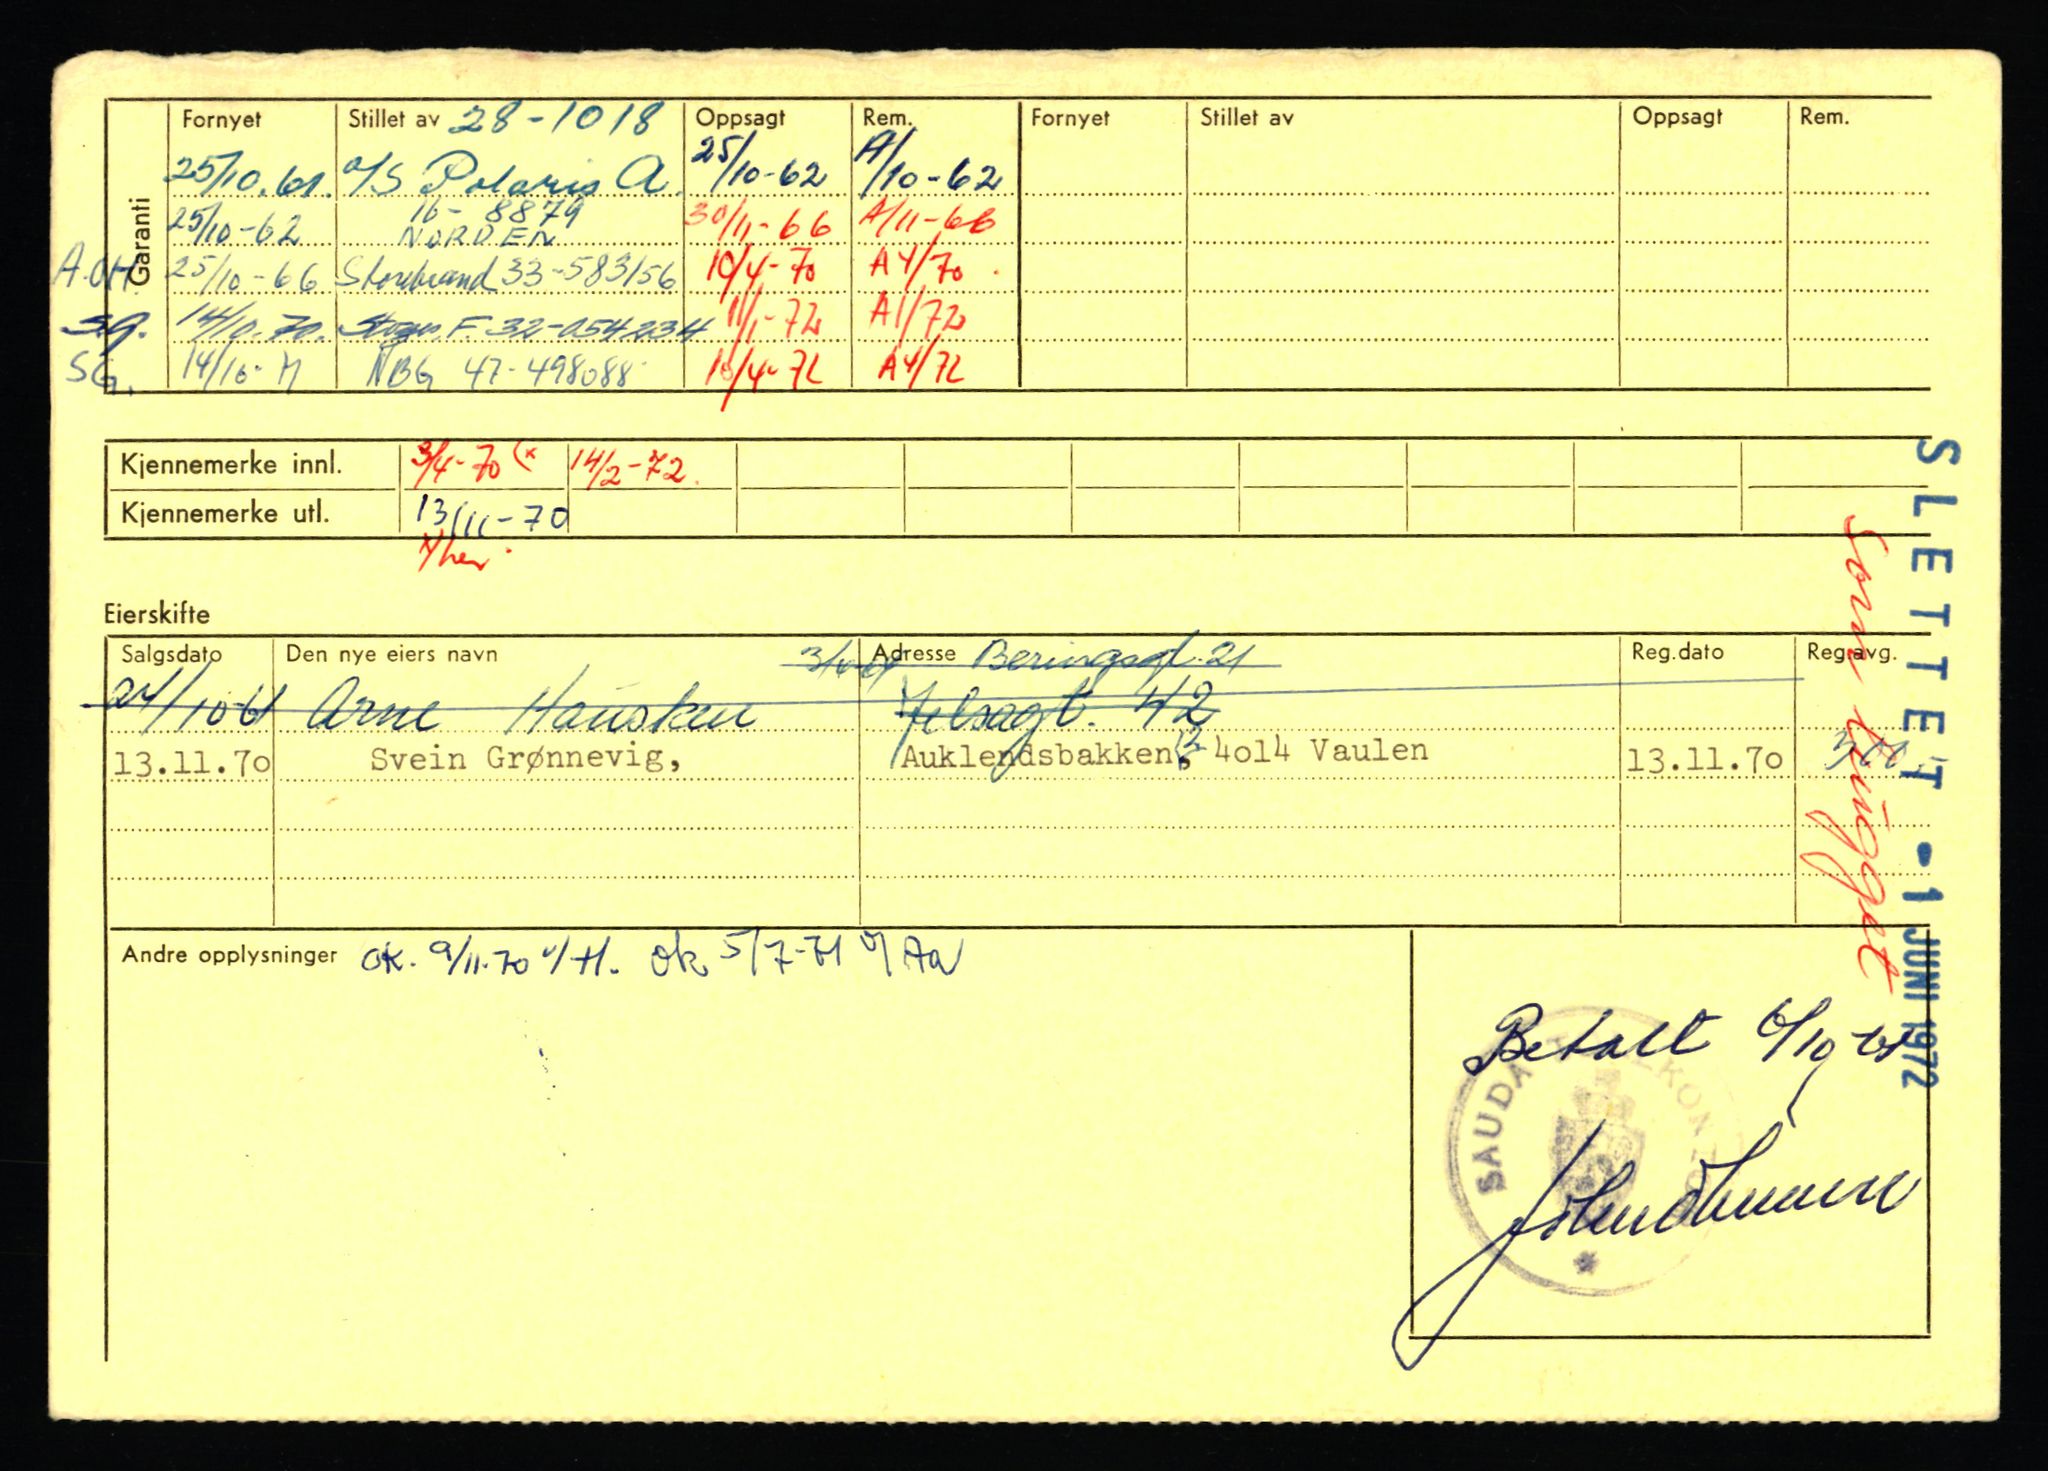 Garanti
Fornyet Stillet av 28-1018 Oppsagt Rem. Fornyet Stillet av Oppsagt Rem.
25/10.61. A/S Polaris A. 25/10-62 A/10-62
25/10-62 16-8879 NORDEN 30/11-66 A/11-66
A.OH. 25/10-66 Storebrand 33-583156 10/4-70 A4/70
SG. 14/10.70. F. 32-054234 11/1-72 A1/72
SG. NBG 47-498088 10/4-72 A4/72
Kjennemerke innl. 3/4-70 (x 14/2-72.
Kjennemerke utl. 13/11-70
Eierskifte
Salgsdato Den nye eiers navn Adresse Beringsgt. 21 Reg.dato Reg.avg.
24/10-61 Arne Hausken Jelsagt. 42
13.11.70 Svein Grønnevig, Auklendsbakken 4014 Vaulen 13.11.70 300
Andre opplysninger OK. 9/11.70 v/H. Ok 5/7-71 v/Aa
SLETTET - 1 JUNI 1972
som vinget
Betalt 6/10-61
SAUDA